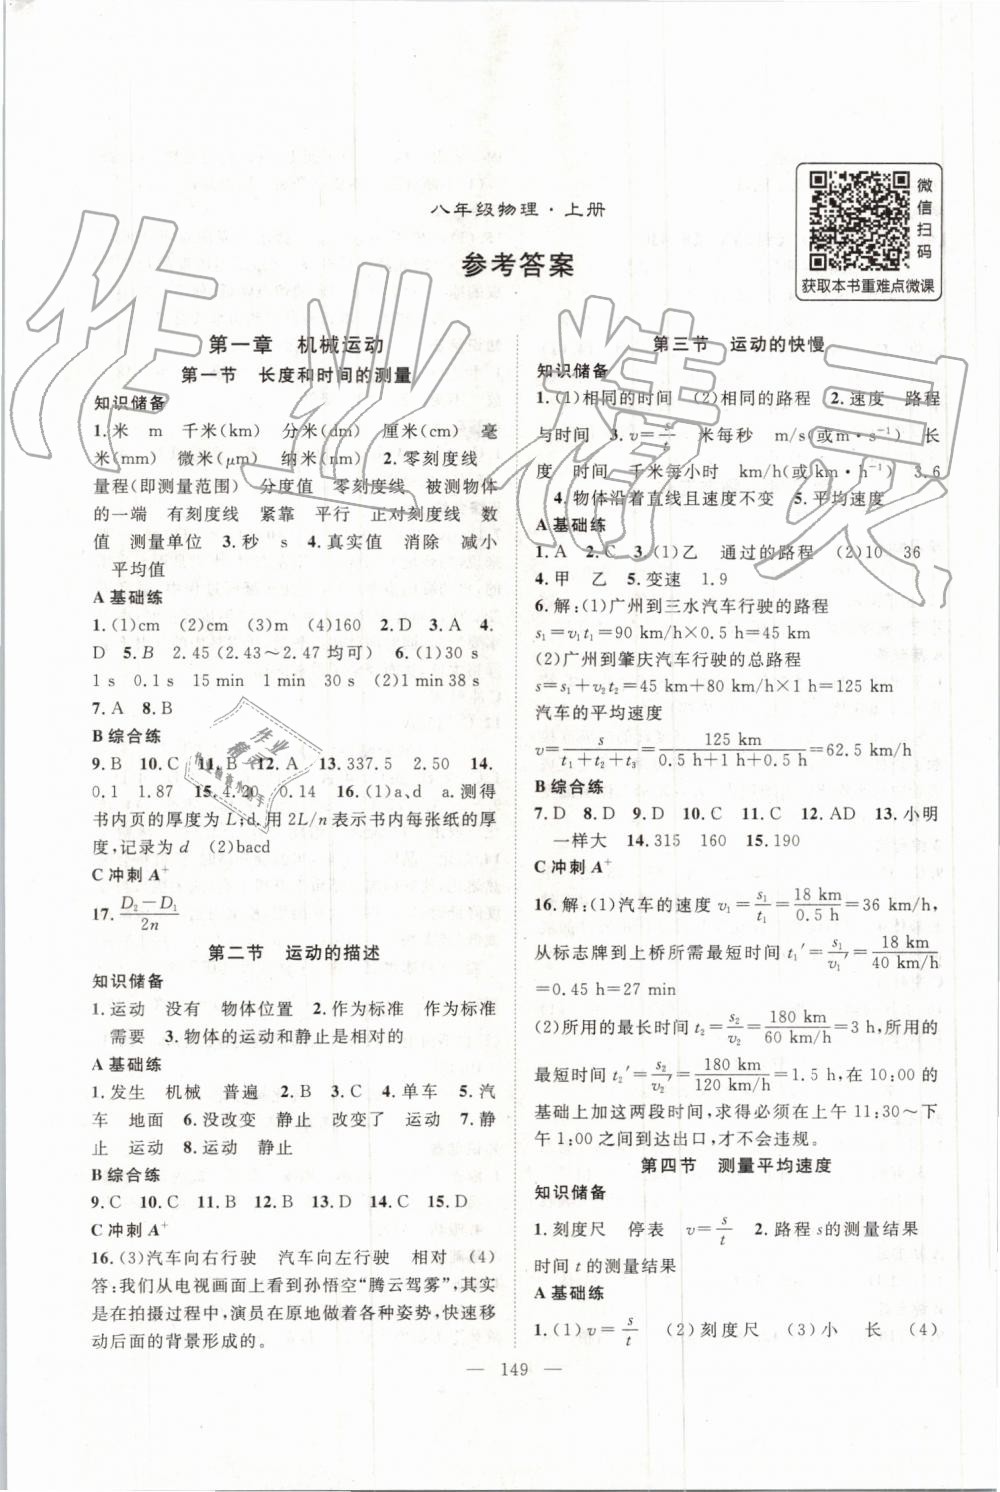 八年级物理·上册
参考答案
微信扫码
获取本书重难点微课
第一章 机械运动
第一节 长度和时间的测量
知识储备
1.米 m 千米(km) 分米(dm) 厘米(cm) 毫
米(mm) 微米(μm) 纳米(nm) 2.零刻度线
量程(即测量范围) 分度值 零刻度线 被测物体
的一端 有刻度线 紧靠 平行 正对刻度线 数
值 测量单位 3.秒 s 4.真实值 消除 减小
平均值
A 基础练
1.(1)cm (2)cm (3)m (4)160 2.D 3.A 4.
D 5.B 2.45(2.43～2.47均可) 6.(1)30 s
1 s 0.1 s 15 min 1 min 30 s (2)1 min38 s
7.A 8.B
B 综合练
9.B 10.C 11.B 12.A 13.337.5 2.50 14.
0.1 1.87 15.4.20 0.14 16.(1)a、d a.测得
书内页的厚度为L;d.用2L/n表示书内每张纸的厚
度,记录为d (2)bacd
C 冲刺 A⁺
17. (D₂－D₁)/2n
第二节 运动的描述
知识储备
1.运动 没有 物体位置 2.作为标准 作为标准
需要 3.物体的运动和静止是相对的
A 基础练
1.发生 机械 普遍 2.B 3.C 4.单车 5.汽
车 地面 6.没改变 静止 改变了 运动 7.静
止 运动 静止 8.运动 静止
B 综合练
9.C 10.C 11.B 12.B 13.C 14.C 15.D
C 冲刺 A⁺
16.(3)汽车向右行驶 汽车向左行驶 相对 (4)
答:我们从电视画面上看到孙悟空“腾云驾雾”,其实
是在拍摄过程中,演员在原地做着各种姿势,快速移
动后面的背景形成的。
第三节 运动的快慢
知识储备
1.(1)相同的时间 (2)相同的路程 2.速度 路程
与时间 3.v＝s/t 米每秒 m/s(或m·s⁻¹) 长
度 时间 千米每小时 km/h(或km·h⁻¹) 3.6
4.物体沿着直线且速度不变 5.平均速度
A 基础练
1.A 2.C 3.(1)乙 通过的路程 (2)10 36
4.甲 乙 5.变速 1.9
6.解:(1)广州到三水汽车行驶的路程
s₁＝v₁t₁＝90 km/h×0.5 h＝45 km
(2)广州到肇庆汽车行驶的总路程
s＝s₁＋v₂t₂＝45 km＋80 km/h×1 h＝125 km
汽车的平均速度
v＝s/(t₁＋t₂＋t₃)＝125 km/(0.5 h＋1 h＋0.5 h)＝62.5 km/h
B 综合练
7.D 8.D 9.D 10.C 11.C 12.AD 13.小明
一样大 14.315 160 15.190
C 冲刺 A⁺
16.解:(1)汽车的速度 v₁＝s₁/t₁＝18 km/0.5 h＝36 km/h,
从标志牌到上桥所需最短时间 t₁′＝s₁/v₁′＝18 km/40 km/h
＝0.45 h＝27 min
(2)所用的最长时间 t₂＝s₂/v₂＝180 km/60 km/h＝3 h,所用的
最短时间 t₂′＝s₂/v₂′＝180 km/120 km/h＝1.5 h,在10:00的
基础上加这两段时间,求得必须在上午11:30～下
午1:00之间到达出口,才不会违规。
第四节 测量平均速度
知识储备
1.刻度尺 停表 v＝s/t 2.路程s的测量结果
时间t的测量结果
A 基础练
1.(1)v＝s/t (2)刻度尺 (3)小 长 (4)
— 149 —
作业精灵
作业精灵